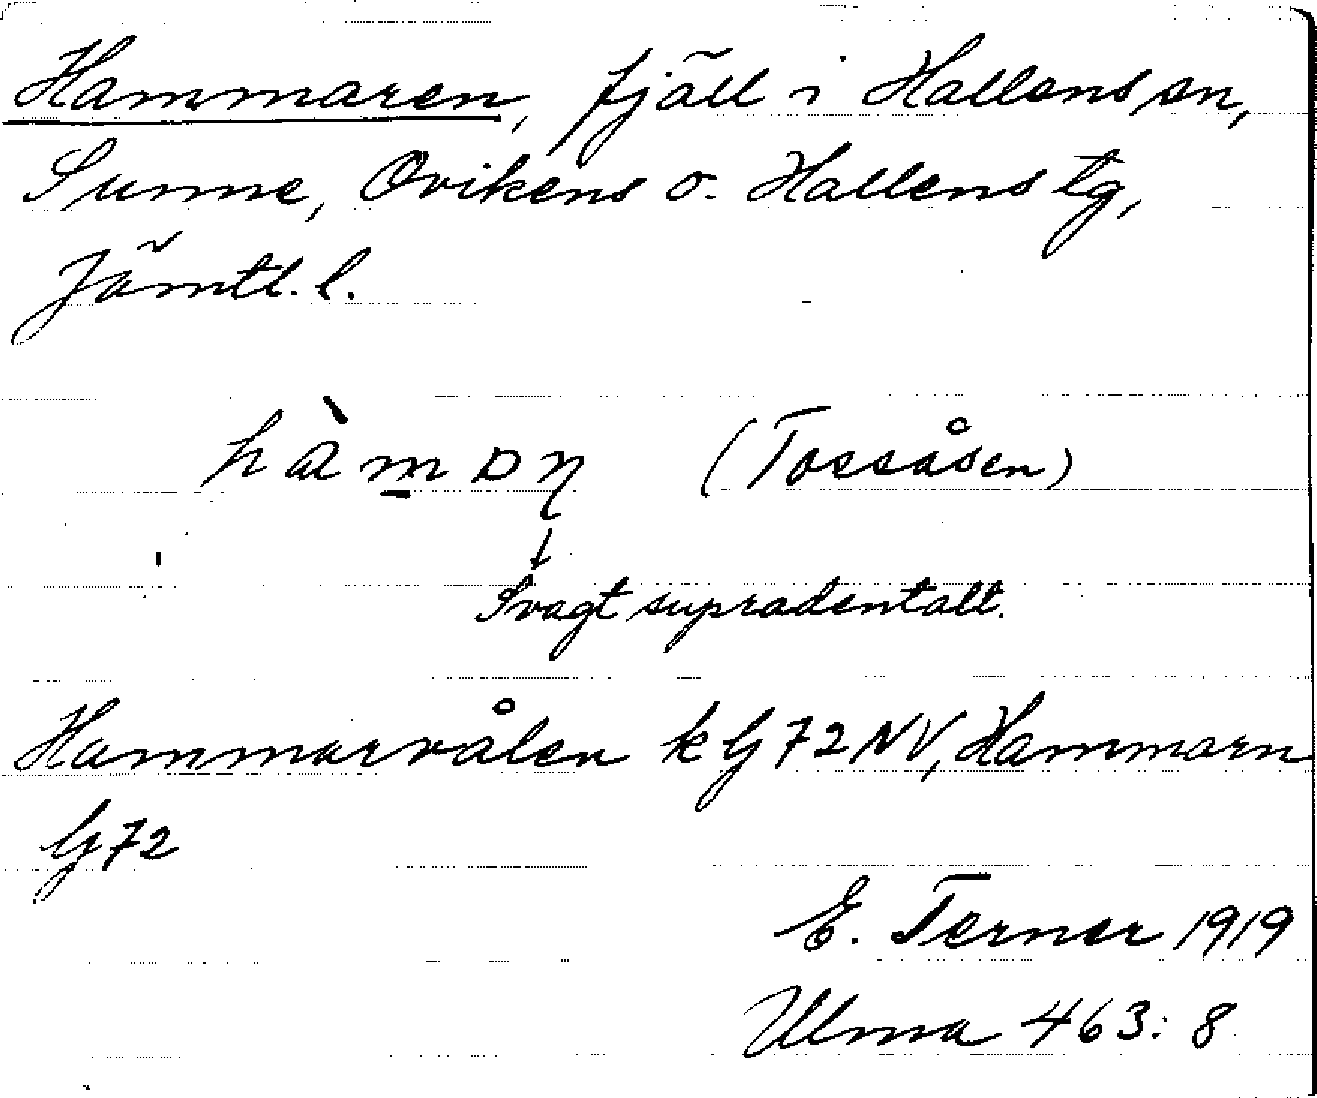 Hammaren, fjäll i Hallens sn,
Sunne, Ovikens o. Hallens tg,
Jämtl. l.
hàm̱ɒɳ (Tossåsen)
↓
Svagt supradentalt.
Hammarvålen k G 72 NV, Hammarn
G 72
E. Terner 1919
Ulma 463: 8